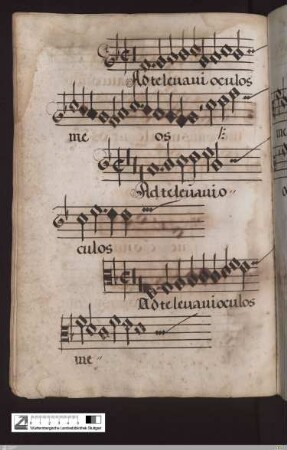 Ad te levavi oculos
me os /:
Ad te levavi o"
culos
Ad te levavi oculos
me"
Württembergische Landesbibliothek Stuttgart